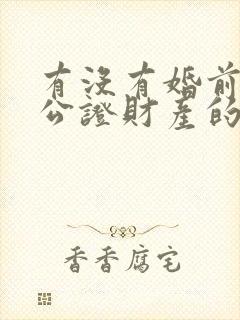 有没有婚前
公證財產的
香香腐宅